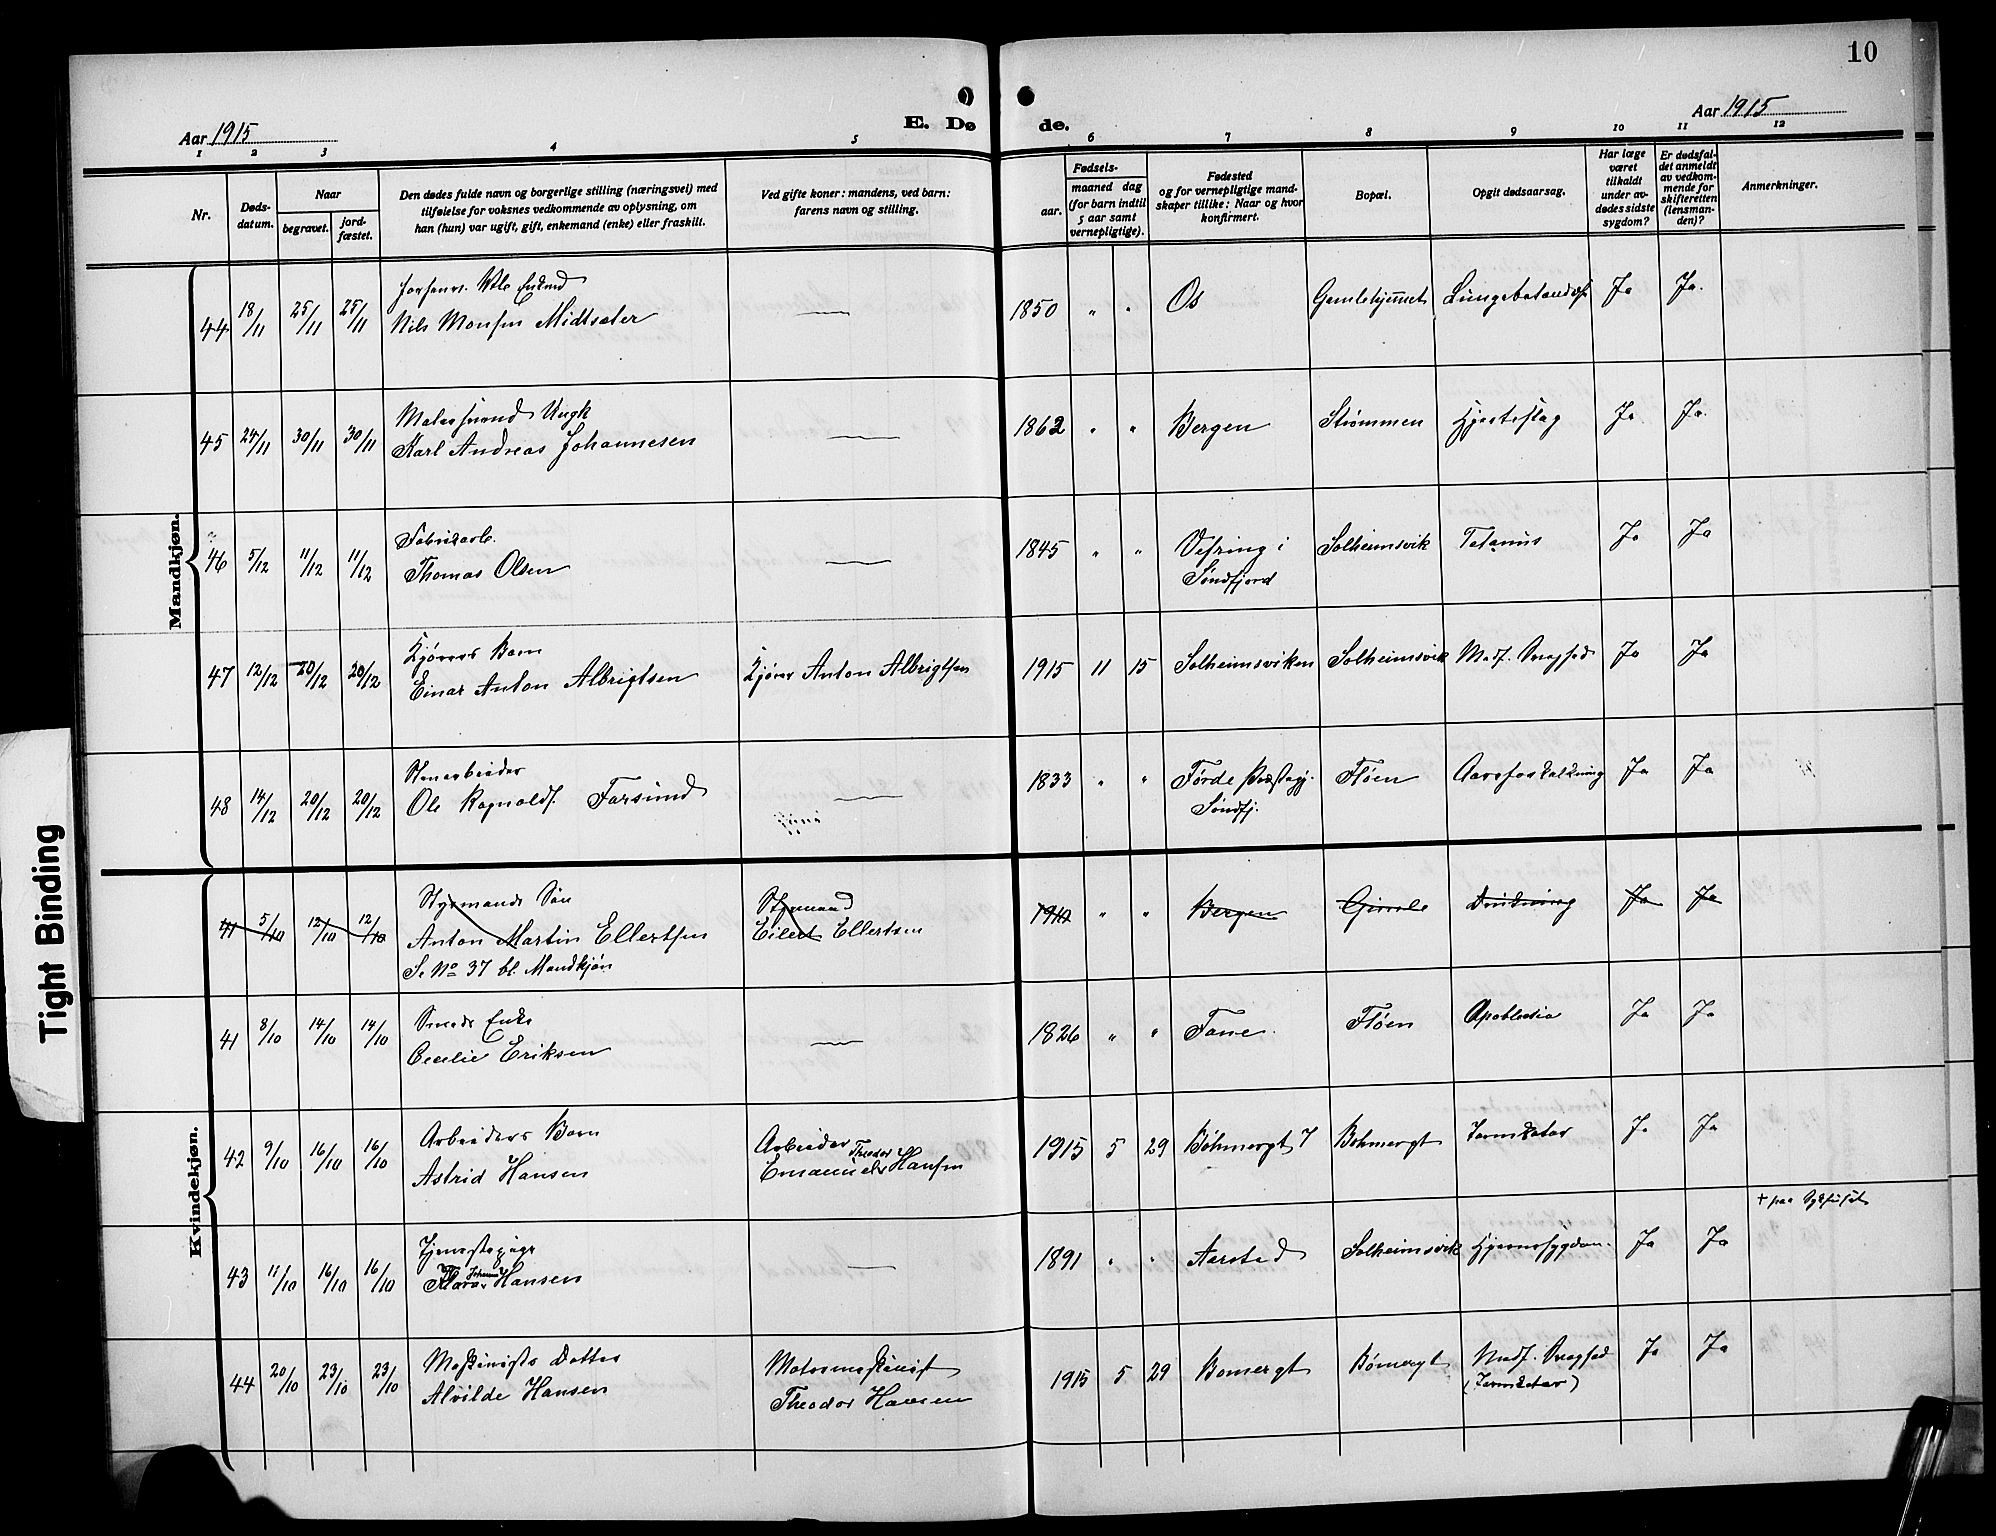 10
Aar 1915
E. Dø de.
Aar 1915
1 2 3 4 5 6 7 8 9 10 11 12
Nr.
Døds-
datum.
Naar
begravet.
jord-
fæstet.
Den dødes fulde navn og borgerlige stilling (næringsvei) med
tilføielse for voksnes vedkommende av oplysning, om
han (hun) var ugift, gift, enkemand (enke) eller fraskilt.
Ved gifte koner: mandens, ved barn:
farens navn og stilling.
Fødsels-
aar.
maaned dag
(for barn indtil
5 aar samt
vernepligtige).
Fødested
og for vernepligtige mand-
skaper tillike: Naar og hvor
konfirmert.
Bopæl.
Opgit dødsaarsag.
Har læge
været
tilkaldt
under av-
dødes sidste
sygdom?
Er dødsfal-
det anmeldt
av vedkom-
mende for
skifteretten
(lensman-
den)?
Anmerkninger.
Mandkjøn.
44 18/11 25/11 25/11
Nils Monsen Midtsæter
1850 " " Os Gamlehjemmet Ja Ja.
45 24/11 30/11 30/11 Malersvend Ungk
Karl Andreas Johannesen
1862 " " Bergen Strømmen Hjerteslag Ja Ja.
46 5/12 11/12 11/12 Fabrikarb.
Thomas Olsen
1845 " " Vefring i
Søndfjord
Solheimsvik Tetanus Ja Ja
47 12/12 20/12 20/12 Kjørers Barn
Einar Anton Albrigtsen
Kjører Anton Albrigtsen
1915 11 15 Solheimsviken Solheimsvik Medf. Svaghed Ja Ja
48 14/12 20/12 20/12 Stenarbeider
Ole Ragnolds. Farsund
1833 " " Førde Præstegj.
Søndfj.
Fløen Aareforkalkning Ja Ja
Kvindekjøn.
41 5/10 12/10 12/10 Styrmands Søn
Anton Martin Ellertsen
Se No 37 bl. Mandkjøn
Styrmand
Eilert Ellertsen
" " Bergen Gimle Drukning Ja Ja
41 8/10 14/10 14/10 Smeds Enke
Cecilie Eriksen
1826 " " Fane. Fløen Apoblexia Ja Ja
42 9/10 16/10 16/10 Arbeiders Barn
Astrid Hansen
Arbeider Theodor
Emanuel Hansen
1915 5 29 Bøhmergt 7 Bohmergt Tarmkatar Ja Ja
43 11/10 16/10 16/10 Tjenestepige
Hansen
1891 " " Aarstad Solheimsvik Hjernesygdom. Ja Ja
+ paa Sykehuset
44 20/10 23/10 23/10 Maskinists Datter
Alvilde Hansen
Motormaskinist
Theodor Hansen
1915 5 29 Bomergt Bømergt Medf. Svaghed
(Tarmkatar)
Ja Ja
Tight Binding